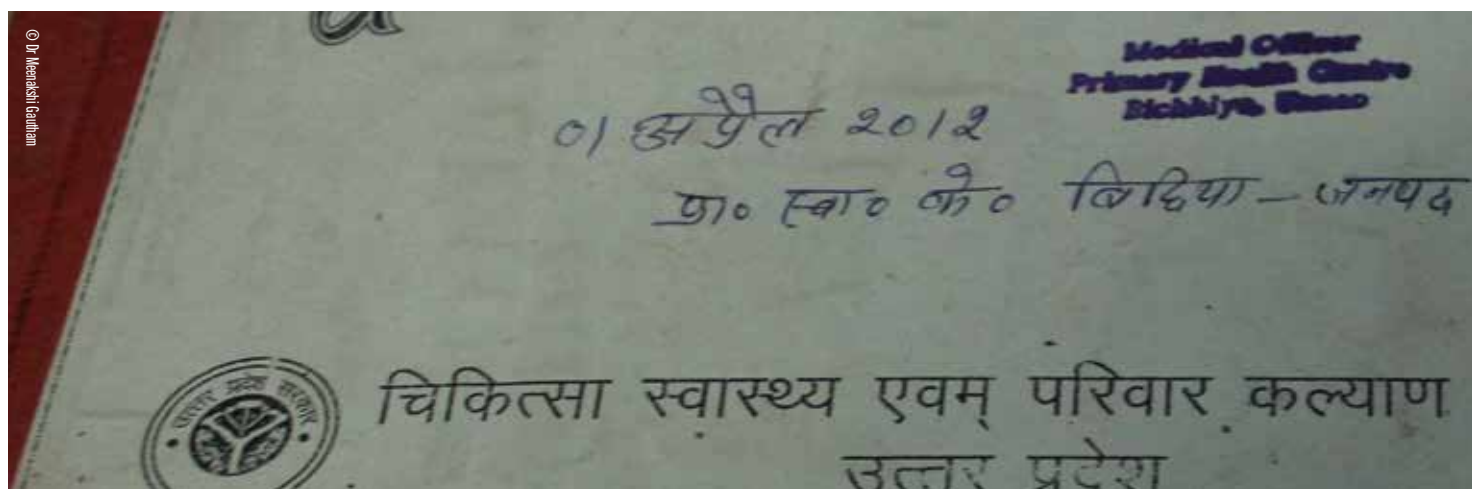 © Dr Meenakshi Gautham
Medical Officer
Primary Health Centre
Bichhiya, Unnao
01 अप्रैल २०१२
प्रा० स्वा० के० बिछिया – जनपद
उत्तर प्रदेश सरकार
चिकित्सा स्वास्थ्य एवम् परिवार कल्याण
उत्तर प्रदेश